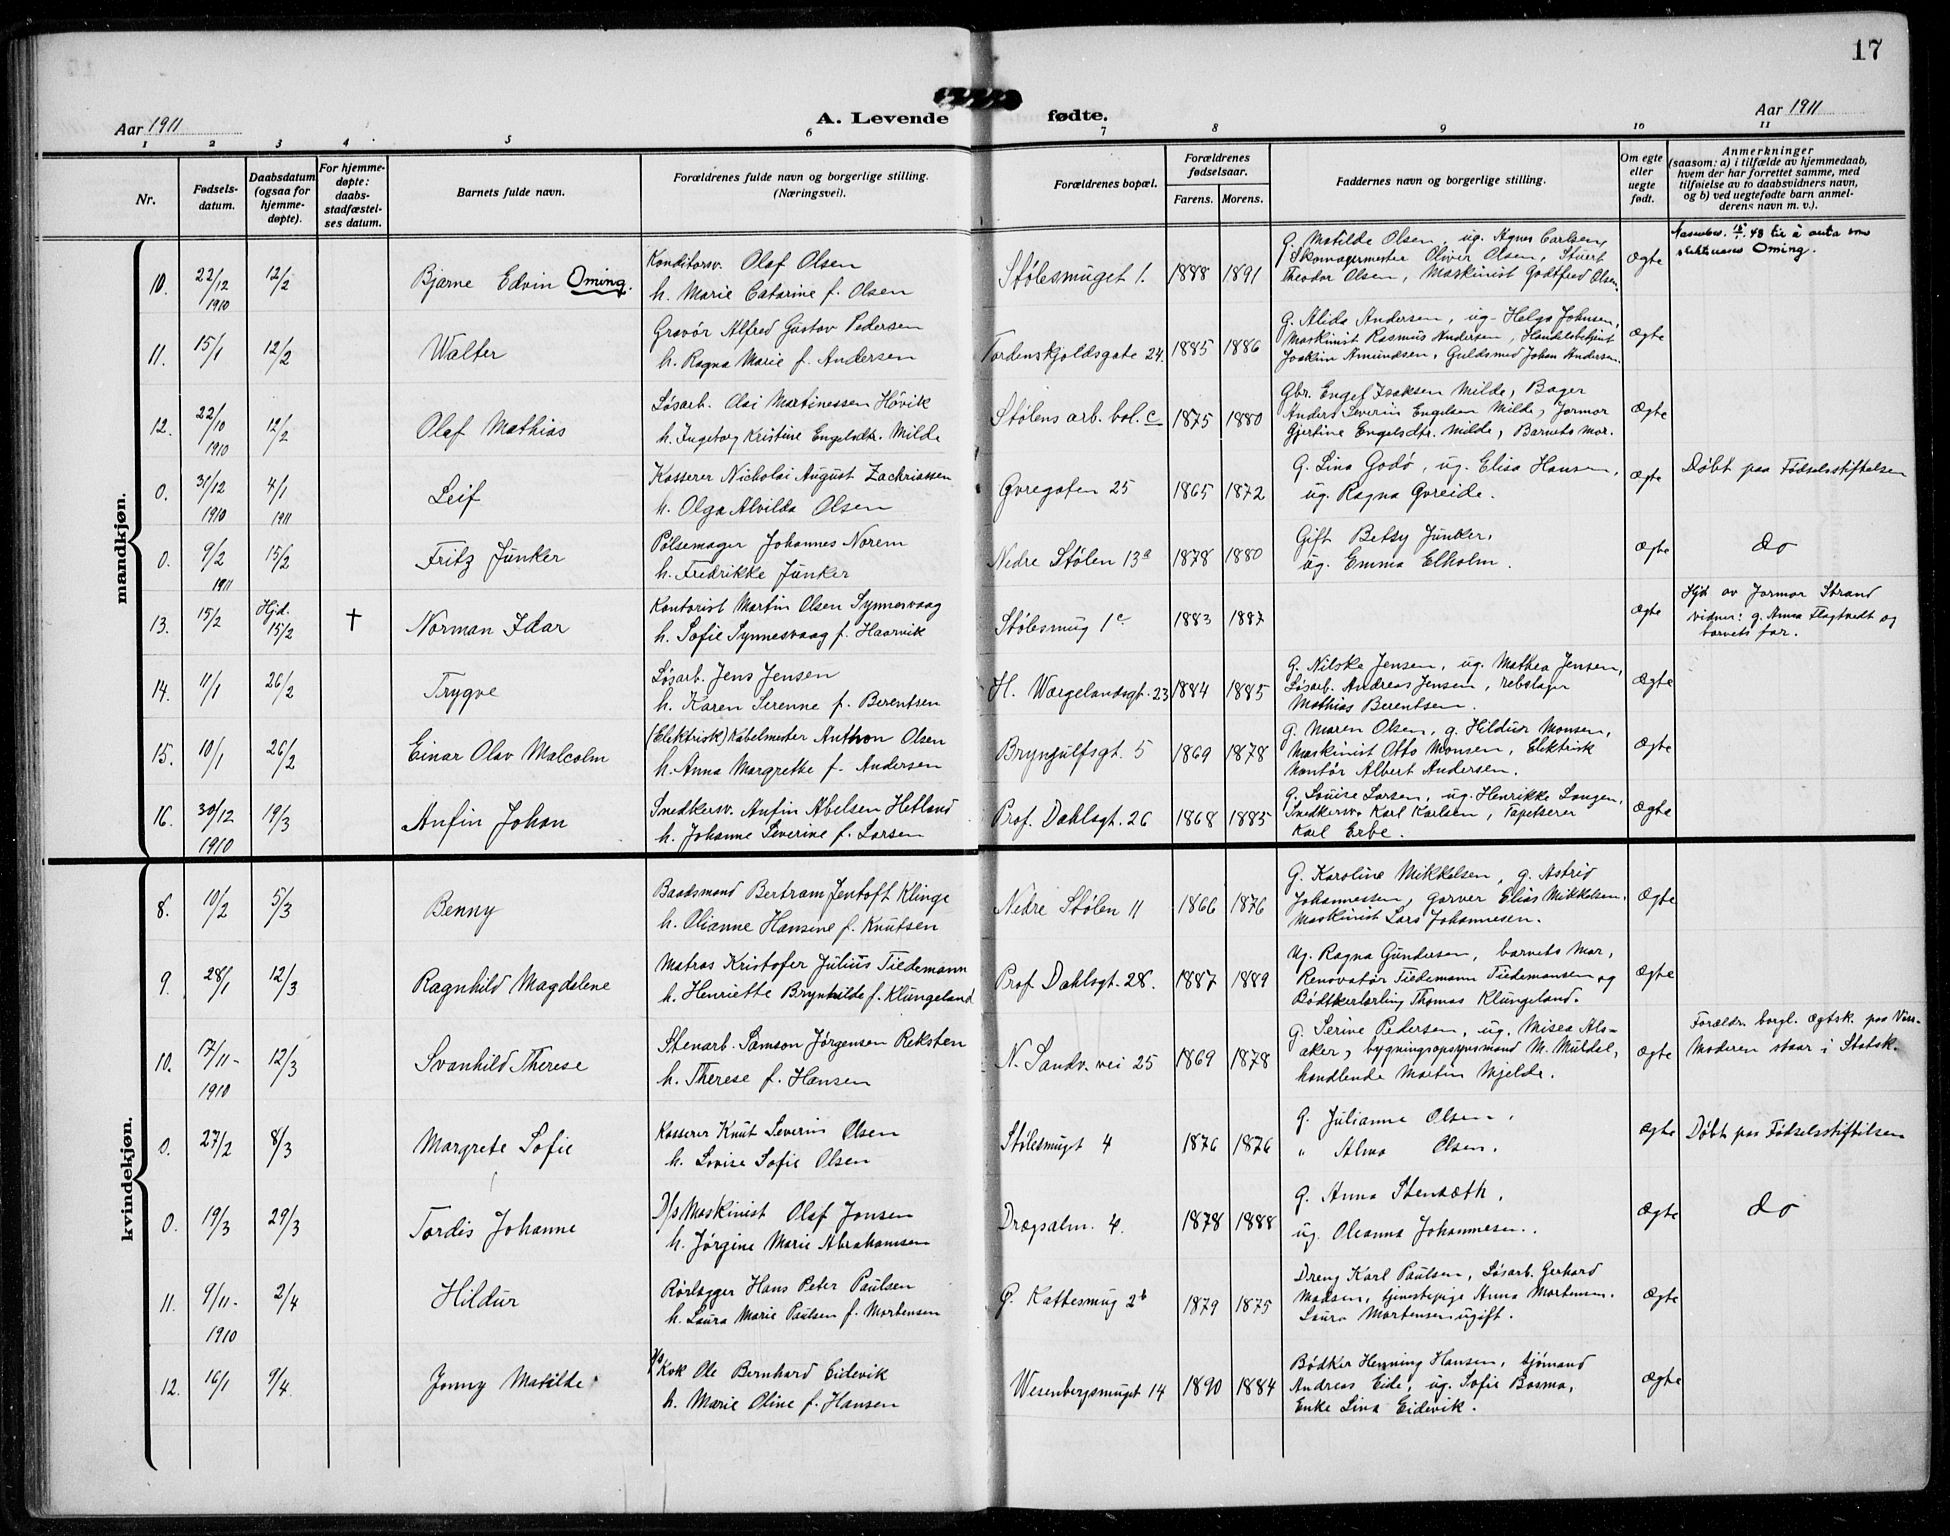 17
Aar 1911
A. Levende fødte.
Aar 1911
1 2 3 4 5 6 7 8 9 10 11
Nr.
Fødsels-
datum.
Daabsdatum
(ogsaa for
hjemme-
døpte).
For hjemme-
døpte:
daabs-
stadfæstel-
ses datum.
Barnets fulde navn.
Forældrenes fulde navn og borgerlige stilling.
(Næringsvei).
Forældrenes bopæl.
Forældrenes
fødselsaar.
Farens. Morens.
Faddernes navn og borgerlige stilling.
Om egte
eller
uegte
født.
Anmerkninger
(saasom: a) i tilfælde av hjemmedaab,
hvem der har forrettet samme, med
tilføielse av to daabsvidners navn,
og b) ved uegtefødte barn anmel-
derens navn m. v.).
mandkjøn.
10. 22/12 1910 12/2 Bjarne Edvin Oming.
Konditorsv. Olaf Olsen
h. Marie Catarine f. Olsen
Stølesmuget 1. 1888 1891
G. Matilde Olsen, ug. Agnes Carlsen,
Skomagermester Oliver Olsen, Stuert
Theodor Olsen, Maskinist Godtfred Olsen.
Ægte
til å anta som
slektsnavn Oming.
11. 15/1 12/2 Walter
Gravør Alfred Gustav Pedersen
h. Ragna Marie f. Andersen
Tordenskjoldsgate 24. 1885 1886
G. Alida Andersen, ug. Helga Johnsen,
Maskinist Rasmus Andersen, Handelsbetjent
Joakim Amundsen, Guldsmed Johan Andersen.
Ægte
12. 22/10 1910 12/2 Olaf Mathias
Løsarb. Olai Martinessen Høvik
h. Ingeborg Kristine Engelsdtr. Milde
Stølens arb. bol. c 1875 1880
Gbr. Engel Isaksen Milde, Bager
Anders Severin Engelsen Milde, Jormor
Gjertine Engelsdtr. Milde, Barnets mor.
Ægte
0. 31/12 1910 4/1 1911 Leif
Kasserer Nicholai August Zachriassen
h. Olga Alvilda Olsen
Øvregaten 25 1865 1872
G. Lina Godø, ug. Elisa Hansen,
ug. Ragna Gvreide.
Ægte
Døbt paa Fødselsstiftelsen
0. 9/2 1911 15/2 Fritz Junker
Pølsemager Johannes Norem
h. Fredrikke Junker
Nedre Stølen 13a 1878 1880
Gift Betsy Junker,
ug. Emma Elholm.
Ægte
do
13. 15/2 Hjd. 15/2 † Norman Idar
Kontorist Martin Olsen Synnesvaag
h. Sofie Synnesvaag f. Haarvik
Stølesmug 1c 1883 1887
Ægte
Hjd av Jormor Strand
vidner: g. Anna Flagtvedt og
barnets far.
14. 11/1 26/2 Trygve
Løsarb. Jens Jensen
h. Karen Serenne f. Berentsen
H. Wergelandsgt. 23 1884 1885
G. Nilske Jensen, ug. Mathea Jensen,
Løsarb. Andreas Jensen, rebslager
Mathias Berentsen.
Ægte
15. 10/1 26/2 Einar Olav Malcolm
(Elektrisk) Kabelmester Anthon Olsen
h. Anna Margrethe f. Andersen
Bryngulfsgt. 5 1869 1878
G. Maren Olsen, g. Hildur Monsen,
Maskinist Otto Monsen, Elektrisk
Montør Albert Andersen.
Ægte
16. 30/12 1910 19/3 Anfin Johan
Snedkersv. Anfin Abelsen Hetland
h. Johanne Severine f. Larsen
Prof. Dahlsgt. 26 1868 1885
G. Louise Larsen, ug. Henrikke Langen,
Snedkersv. Karl Karlsen, Tapetserer
Karl Erbe.
Ægte
kvindekjøn.
8. 10/2 5/3 Benny
Baadsmand Bertram Jentoft Klinge
h. Olianne Hansine f. Knutsen
Nedre Stølen 11 1866 1876
G. Karoline Mikkelsen, g. Astrid
Johannessen, garver Elias Mikkelsen.
Maskinist Lars Johannesen.
Ægte
9. 28/1 12/3 Ragnhild Magdelene
Matros Kristofer Julius Tiedemann
h. Henriette Brynhilde f. Klungeland
Prof. Dahlsgt. 28. 1887 1889
Ug. Ragna Gundersen, barnets Mor,
Renovatør Tiedemann Tiedemansen og
Bødtkerlærling Thomas Klungeland.
Ægte
10. 17/11 - 1910 12/3 Svanhild Therese
Stenarb. Samson Jørgensen Reksten
h. Therese f. Hansen
N. Sandv. vei 25 1869 1878
G. Serine Pedersen, ug. Misea Als-
aker, bygningsopsynsmand M. Muldal,
handlende Martin Mjelde.
Ægte
Forældr. borgl. ægtsk. paa Voss.
Moderen staar i Statsk.
0. 27/2 8/3 Margrete Sofie
Kasserer Knut Severin Olsen
h. Lovise Sofie Olsen
Stølesmuget 4 1876 1876
G. Julianne Olsen,
" Alma Olsen.
Ægte
Døbt paa Fødselsstiftelsen
0. 19/3 29/3 Tordis Johanne
D/s Maskinist Olaf Jonsen
h. Jørgine Marie Abrahamsen
Dragsalm. 4. 1878 1888
G. Anna Stensæth,
ug. Oleanna Johannesen.
Ægte
do
11. 9/11 - 1910 2/4 Hildur
Rørlægger Hans Peter Paulsen
h. Laura Marie Paulsen f. Mortensen
G. Kattesmug 2b 1879 1875
Dreng Karl Paulsen, Løsarb. Gerhard
Madsen, tjenestepige Anna Mortensen.
Laura Mortensen ugift.
Ægte
12. 16/1 9/4. Jonny Matilde
Kok Ole Bernhard Eidevik
h. Marie Oline f. Hansen
Wesenbergsmuget 14 1890 1884
Bødker Henning Hansen, sjømand
Andreas Eide, ug. Sofie Bosma,
Enke Lina Eidevik.
Ægte